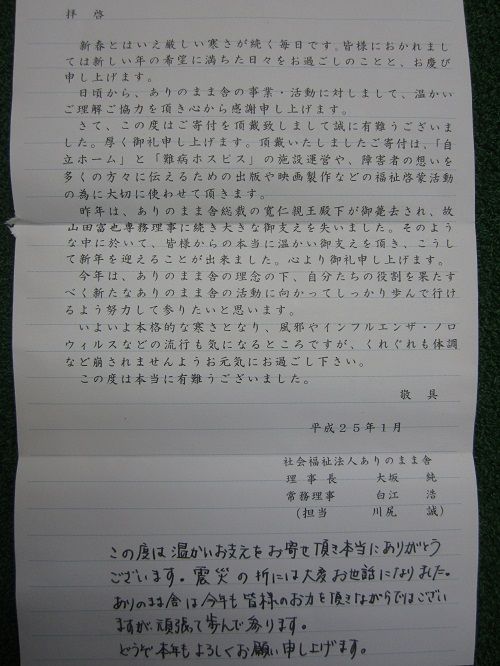 拝　啓
　新春とはいえ厳しい寒さが続く毎日です。皆様におかれまし
ては新しい年の希望に満ちた日々をお過ごしのことと、お慶び
申し上げます。
　日頃から、ありのまま舎の事業・活動に対しまして、温かい
ご理解ご協力を頂き心から感謝申し上げます。
　さて、この度はご寄付を頂戴致しまして誠に有難うございま
した。厚く御礼申し上げます。頂戴いたしましたご寄付は、「自
立ホーム」と「難病ホスピス」の施設運営や、障害者の想いを
多くの方々に伝えるための出版や映画製作などの福祉啓蒙活動
の為に大切に使わせて頂きます。
　昨年は、ありのまま舎総裁の寛仁親王殿下が御薨去され、故
山田富也専務理事に続き大きな御支えを失いました。そのよう
な中に於いて、皆様からの本当に温かい御支えを頂き、こうし
て新年を迎えることが出来ました。心より御礼申し上げます。
　今年は、ありのまま舎の理念の下、自分たちの役割を果たす
べく新たなありのまま舎の活動に向かってしっかり歩んで行け
るよう努力して参りたいと思います。
　いよいよ本格的な寒さとなり、風邪やインフルエンザ・ノロ
ウィルスなどの流行も気になるところですが、くれぐれも体調
など崩されませんようお元気にお過ごし下さい。
　この度は本当に有難うございました。
敬　具
平成２５年１月
社会福祉法人ありのまま舎
理　事　長　　大坂　純
常務理事　　白江　浩
（担当　　川尻　誠）
この度は温かいお支えをお寄せ頂き本当にありがとう
ございます。震災の折には大変お世話になりました。
ありのまま舎は今年も皆様のお力を頂きながらではござい
ますが、頑張って歩んで参ります。
どうぞ本年もよろしくお願い申し上げます。